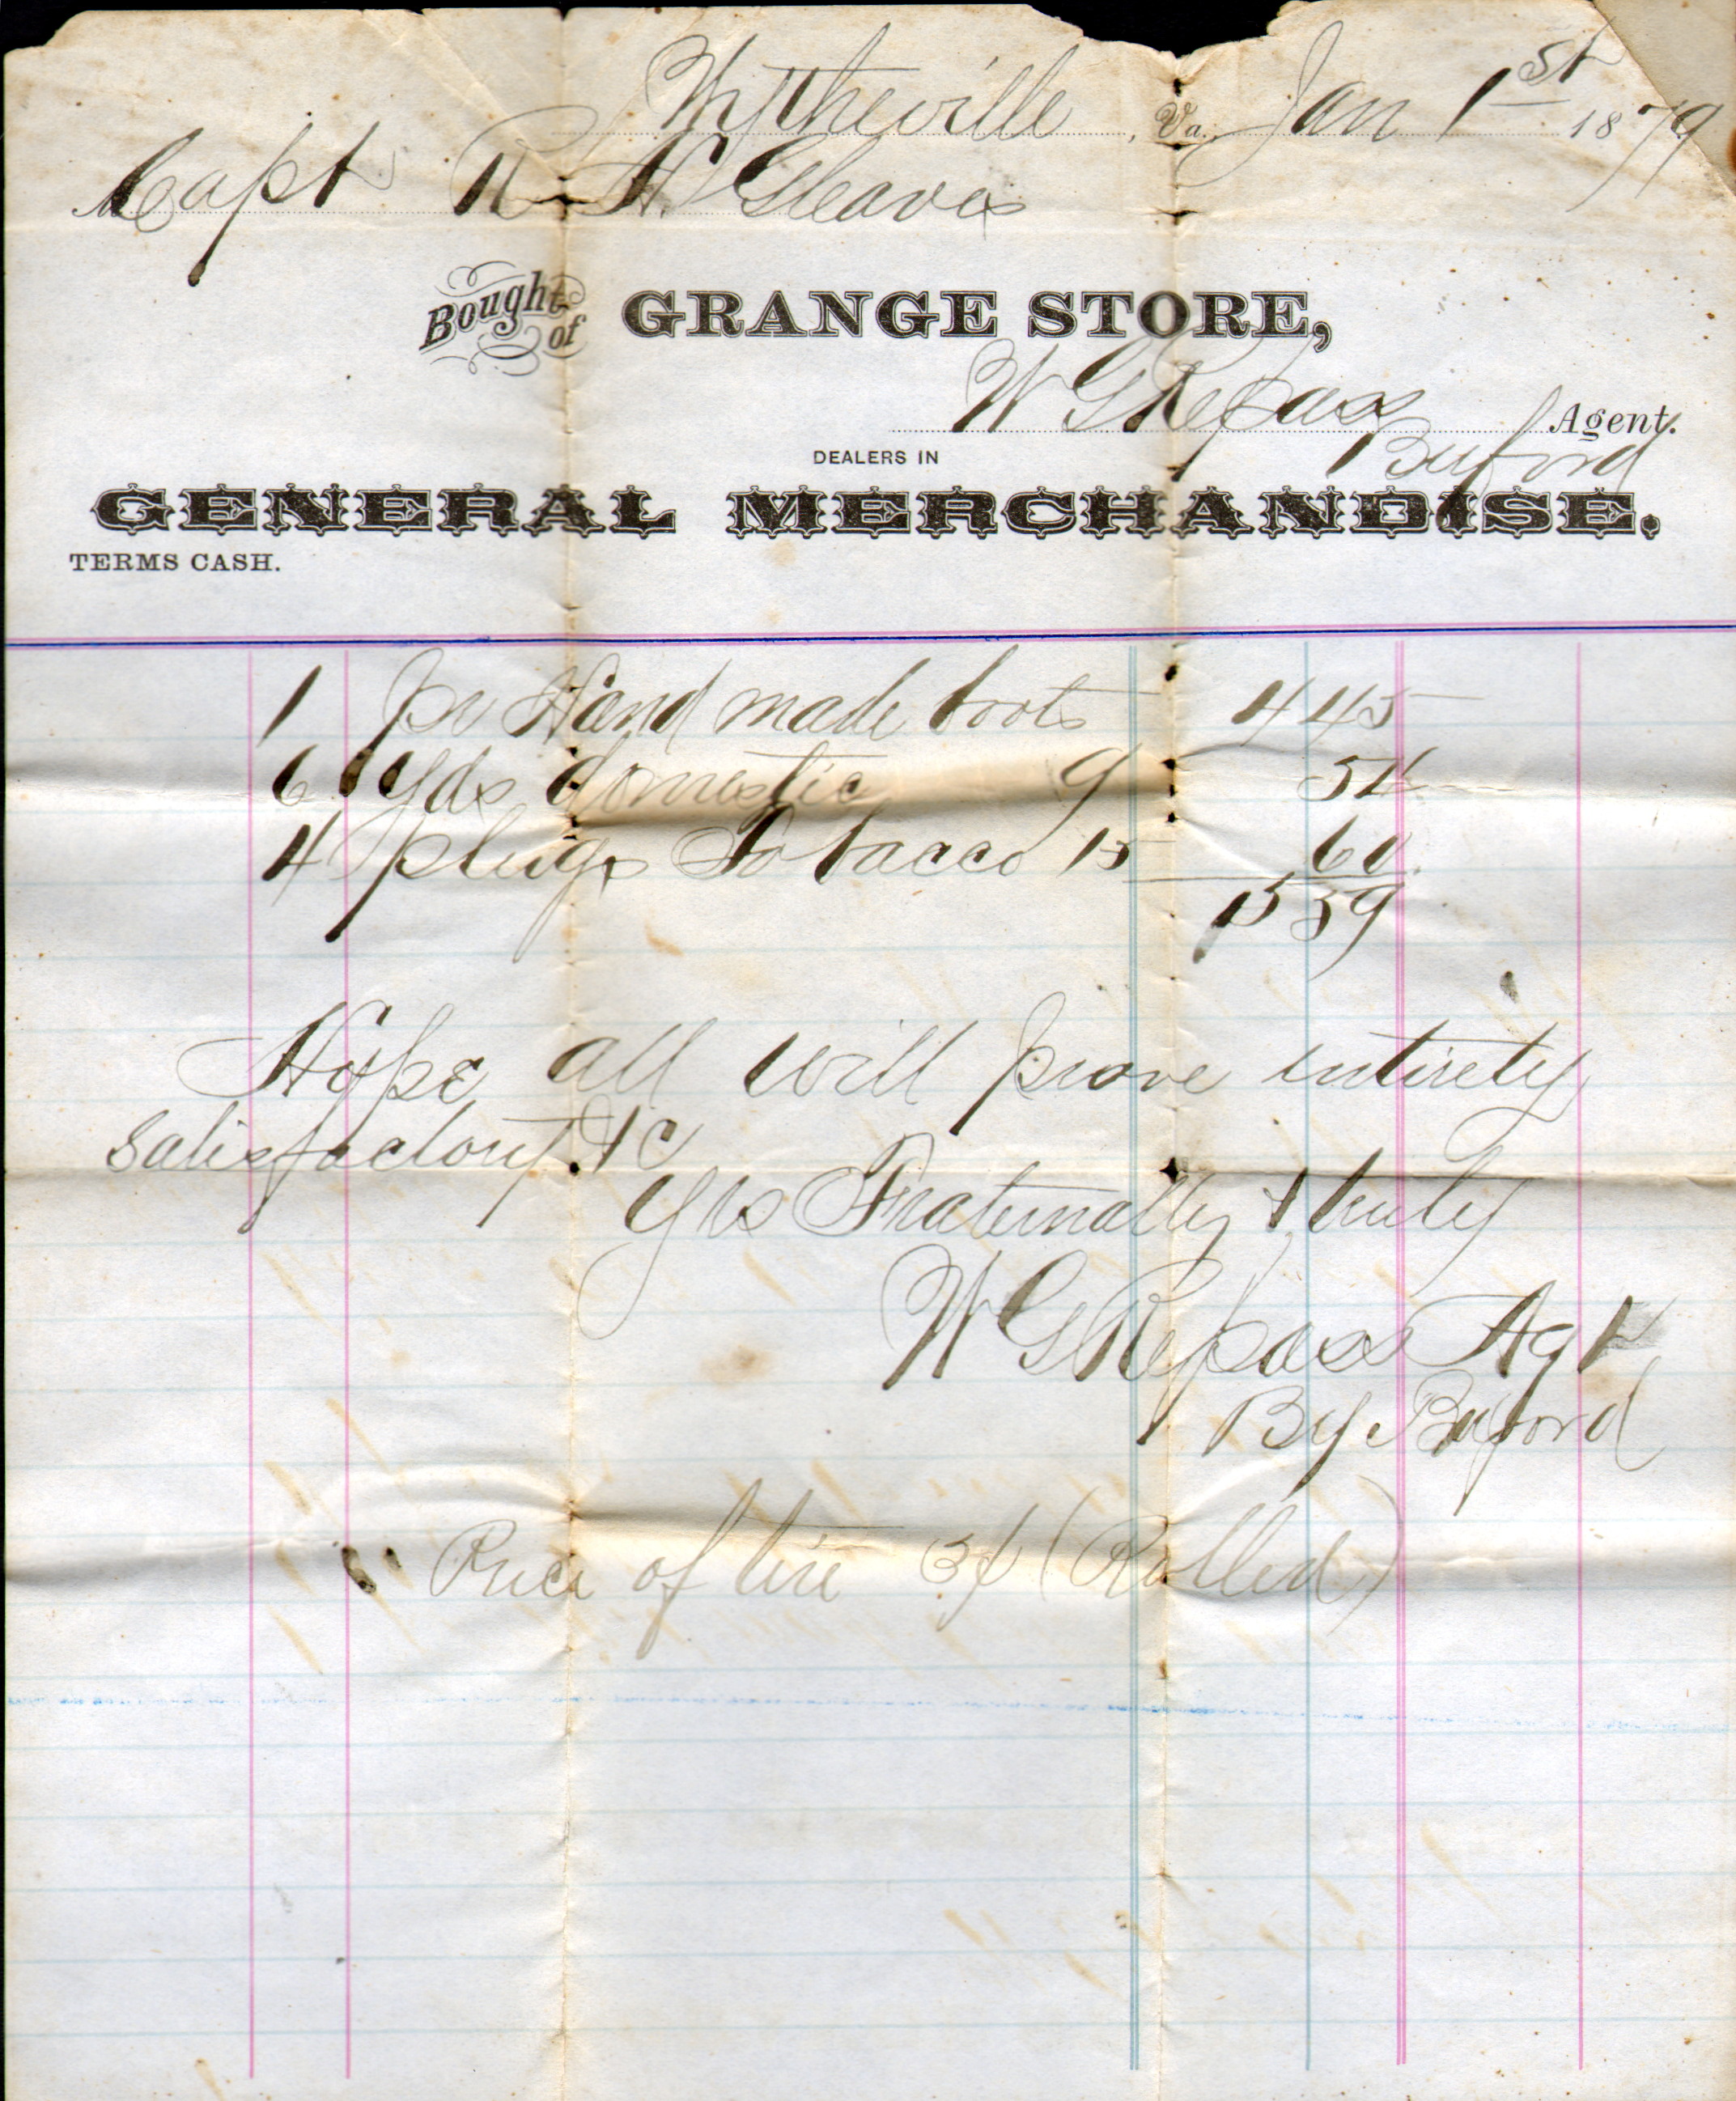 Wytheville, Va. Jan 1st 1879
Capt R. H. Gleaves
Bought of GRANGE STORE,
W G Repass Agent.
Buford
DEALERS IN
GENERAL MERCHANDISE.
TERMS CASH.
1 pr Hand made boots 4 45
6 Yds domestic 9 54
4 plugs Tobacco 15 60
5 59
Hope all will prove entirely
satisfactory &c
Yrs Fraternally & truly
W G Repass Agt
By Buford
Price of tire 3¢ (Rolled)